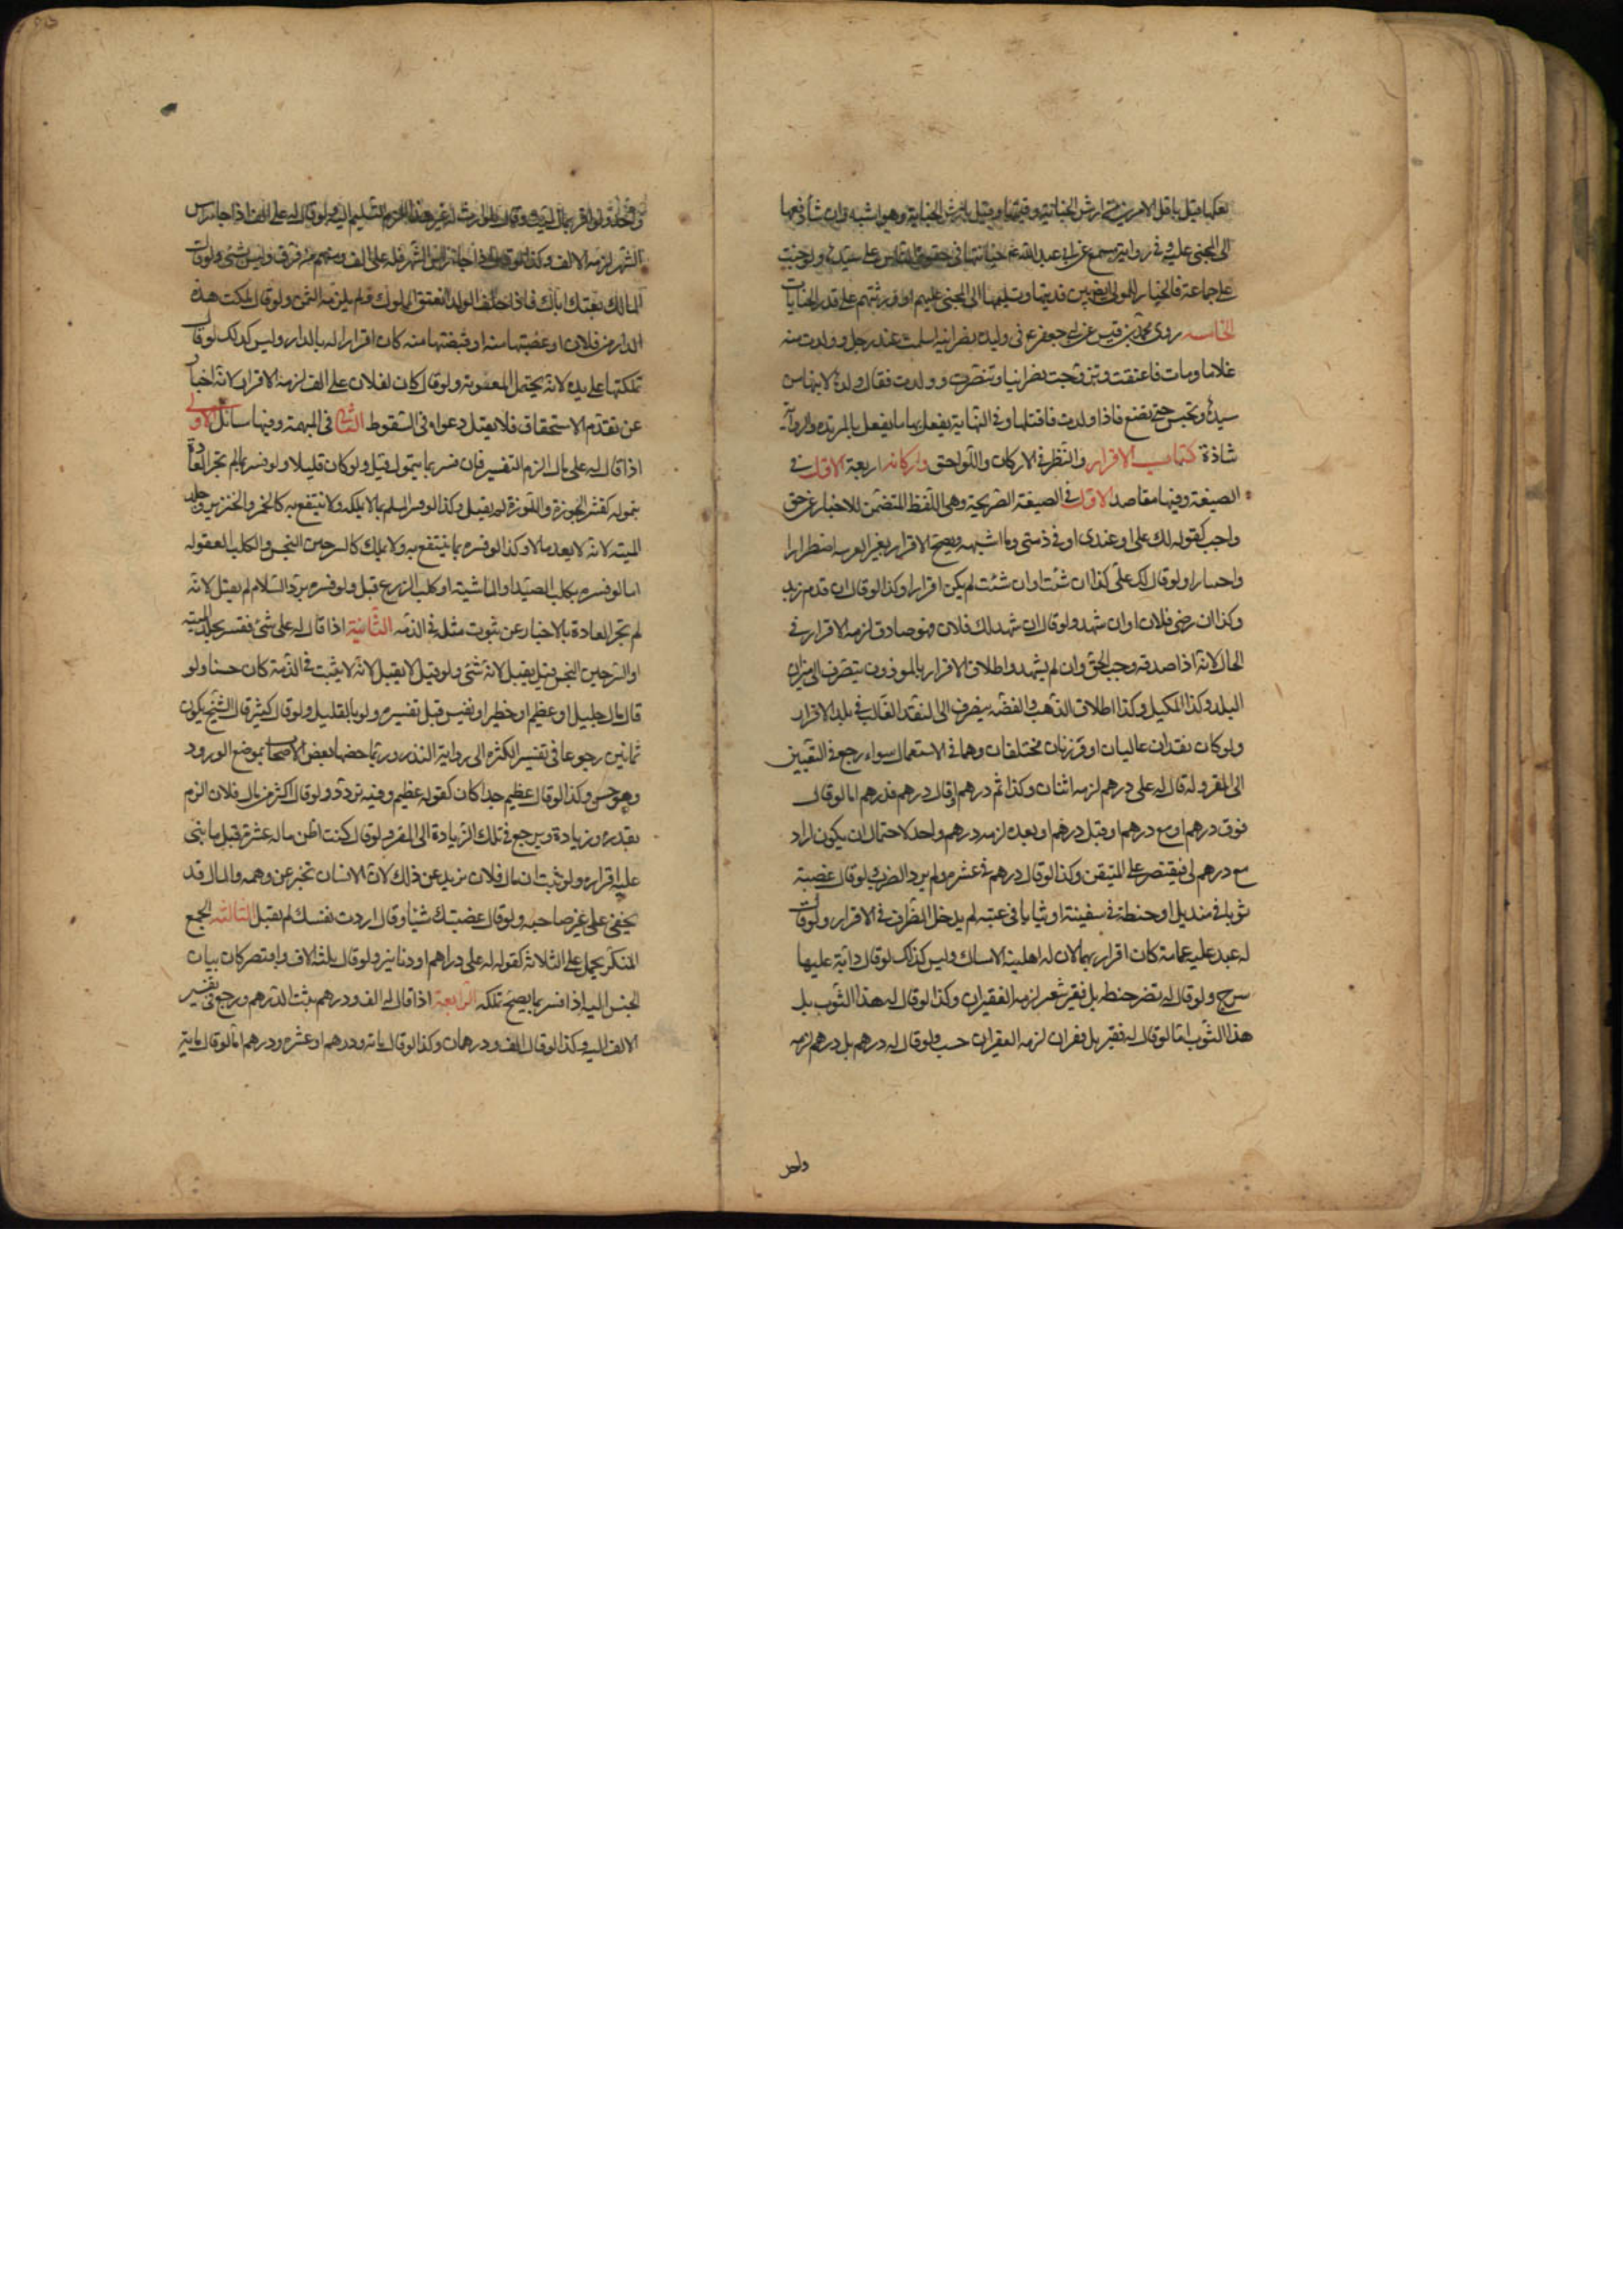 بفكها قيل باقل الامرين من ارش الجناية وقيمتها وقيل بارش الجناية وهو اشبه وان شاء دفعها
الى المجنى عليه وفى رواية مسمع عن ابى عبد الله ع جنايتها فى حقوق الناس على سيدها ولو جنت
على جماعة فالخيار للمولى ايضا بين فديتها وتسليمها الى المجنى عليهم او ورثتهم على قدر الجنايات
الخامسه روى محمد بن قيس عن ابى جعفر ع فى وليده نصرانيه اسلمت عند رجل وولدت منه
غلاما ومات فاعتقت وتزوجت نصرانيا وتنصرت وولدت فقال ولدها لابنها من
سيدها وتحبس حتى تضع فاذا ولدت فاقتلها وفى النهاية يفعل بها ما يفعل بالمرتده والرواية
شاذة كتاب الاقرار والنظر فى الاركان واللواحق واركانه اربعة الاول فى
الصيغة وفيها مقاصد الاول فى الصيغة الصريحة وهى اللفظ المتضمن للاخبار عن حق
واجب كقوله لك على او عندى او فى ذمتى وما اشبهه ويصح الاقرار بغير العربيه اضطرارا
واختيارا ولو قال لك على كذا ان شئت او ان شئت لم يكن اقرارا وكذا لو قال ان قدم زيد
وكذا ان رضى فلان او ان شهد ولو قال ان شهد لك فلان فهو صادق لزمه الاقرار فى
الحال لانه اذا صدقه وجب الحق وان لم يشهد واطلاق الاقرار بالموزون يتصرف الى ميزان
البلد وكذا المكيل وكذا اطلاق الذهب والفضه ينصرف الى النقد الغالب فى بلد الاقرار
ولو كان نقدان غالبان او وزنان مختلفان وهما فى الاستعمال سواء رجع فى التعيين
الى المقر ولو قال له على درهم لزمه اثنان وكذا ثم درهم او قال درهم فدرهم اما لو قال
فوق درهم او مع درهم او قبل درهم او بعده لزمه درهم واحد لاحتمال ان يكون اراد
مع درهم لى فيقتصر على المتيقن وكذا لو قال درهم فى عشره ولم يرد الضرب ولو قال غصبته
ثوبا فى منديل او حنطة فى سفينة او ثيابا فى عيبه لم يدخل الظرف فى الاقرار ولو قال
له عبد عليه عمامة كان اقرارا بهما لان له اهلية الامساك وليس كذلك لو قال دابة عليها
سرج ولو قال له قفيز حنطه بل قفيز شعير لزمه القفيزان وكذا لو قال له هذا الثوب بل
هذا الثوب اما لو قال له قفيز بل قفيزان لزمه القفيزان حسب ولو قال له درهم بل درهم لزمه
واحد
واحد ولو اقر بمال لميت وقال لا وارث له غير هذا الزم التسليم اليه ولو قال له على الف اذا جاء راس
الشهر لزمه الالف وكذا لو قال اذا جاء راس الشهر فله على الف ومنهم من فرق وليس بشئ ولو قال
المالك بعتك اباك فاذا حلف الولد انعتق المملوك ولم يلزمه الثمن ولو قال ملكت هذه
الدار من فلان او غصبتها منه او قبضتها منه كان اقرارا له بالدار وليس كذلك لو قال
تملكتها على يده لانه يحتمل المعونة ولو قال كان لفلان على الف لزمه الاقرار لانه اخبار
عن تقدم الاستحقاق فلا يقبل دعواه فى السقوط الثانى فى المبهمة وفيها مسائل الاولى
اذا قال له على مال الزم التفسير فان فسر بما يتمول قبل ولو كان قليلا ولو فسر بما لم تجر العادة
بتموله كقشر الجوزة واللوزة لم يقبل وكذا لو فسر المسلم بما لا يملكه ولا ينتفع به كالخمر والخنزير وجلد
الميته لانه لا يعد مالا وكذا لو فسره بما ينتفع به ولا يملك كالسرجين النجس والكلب العقور
اما لو فسره بكلب الصيد او الماشية او كلب الزرع قبل ولو فسره برد السلام لم يقبل لانه
لم تجر العادة بالاخبار عن ثبوت مثله فى الذمه الثانية اذا قال له على شئ ففسر بجلد الميته
او السرجين النجس قيل يقبل لانه شئ ولو قيل لا يقبل لانه لا يثبت فى الذمة كان حسنا ولو
قال مال جليل او عظيم او خطير او نفيس قبل تفسيره ولو بالقليل ولو قال كثير قال الشيخ يكون
ثمانين رجوعا فى تفسير الكثره الى رواية النذر وربما خصها بعض الاصحاب بموضع الورود
وهو حسن وكذا لو قال عظيم جدا كان كقوله عظيم وفيه تردد ولو قال اكثر من مال فلان الزم
بقدره وزيادة ويرجع فى تلك الزيادة الى المقر ولو قال كنت اظن ماله عشرة قبل ما بنى
عليه اقراره ولو ثبت ان مال فلان يزيد عن ذلك لان الانسان يخبر عن وهمه والمال قد
يخفى على غير صاحبه ولو قال غصبتك شيئا وقال اردت نفسك لم يقبل الثالثه الجمع
المنكر يحمل على الثلاثه كقوله له على دراهم او دنانير ولو قال ثلثة الاف واقتصر كان بيان
الجنس اليه اذا فسر بما يصح تملكه الرابعة اذا قال له الف ودرهم يثبت الدرهم ورجع فى تفسير
الالف اليه وكذا لو قال الف ودرهمان وكذا لو قال مائه ودرهم او عشره ودرهم اما لو قال ماية